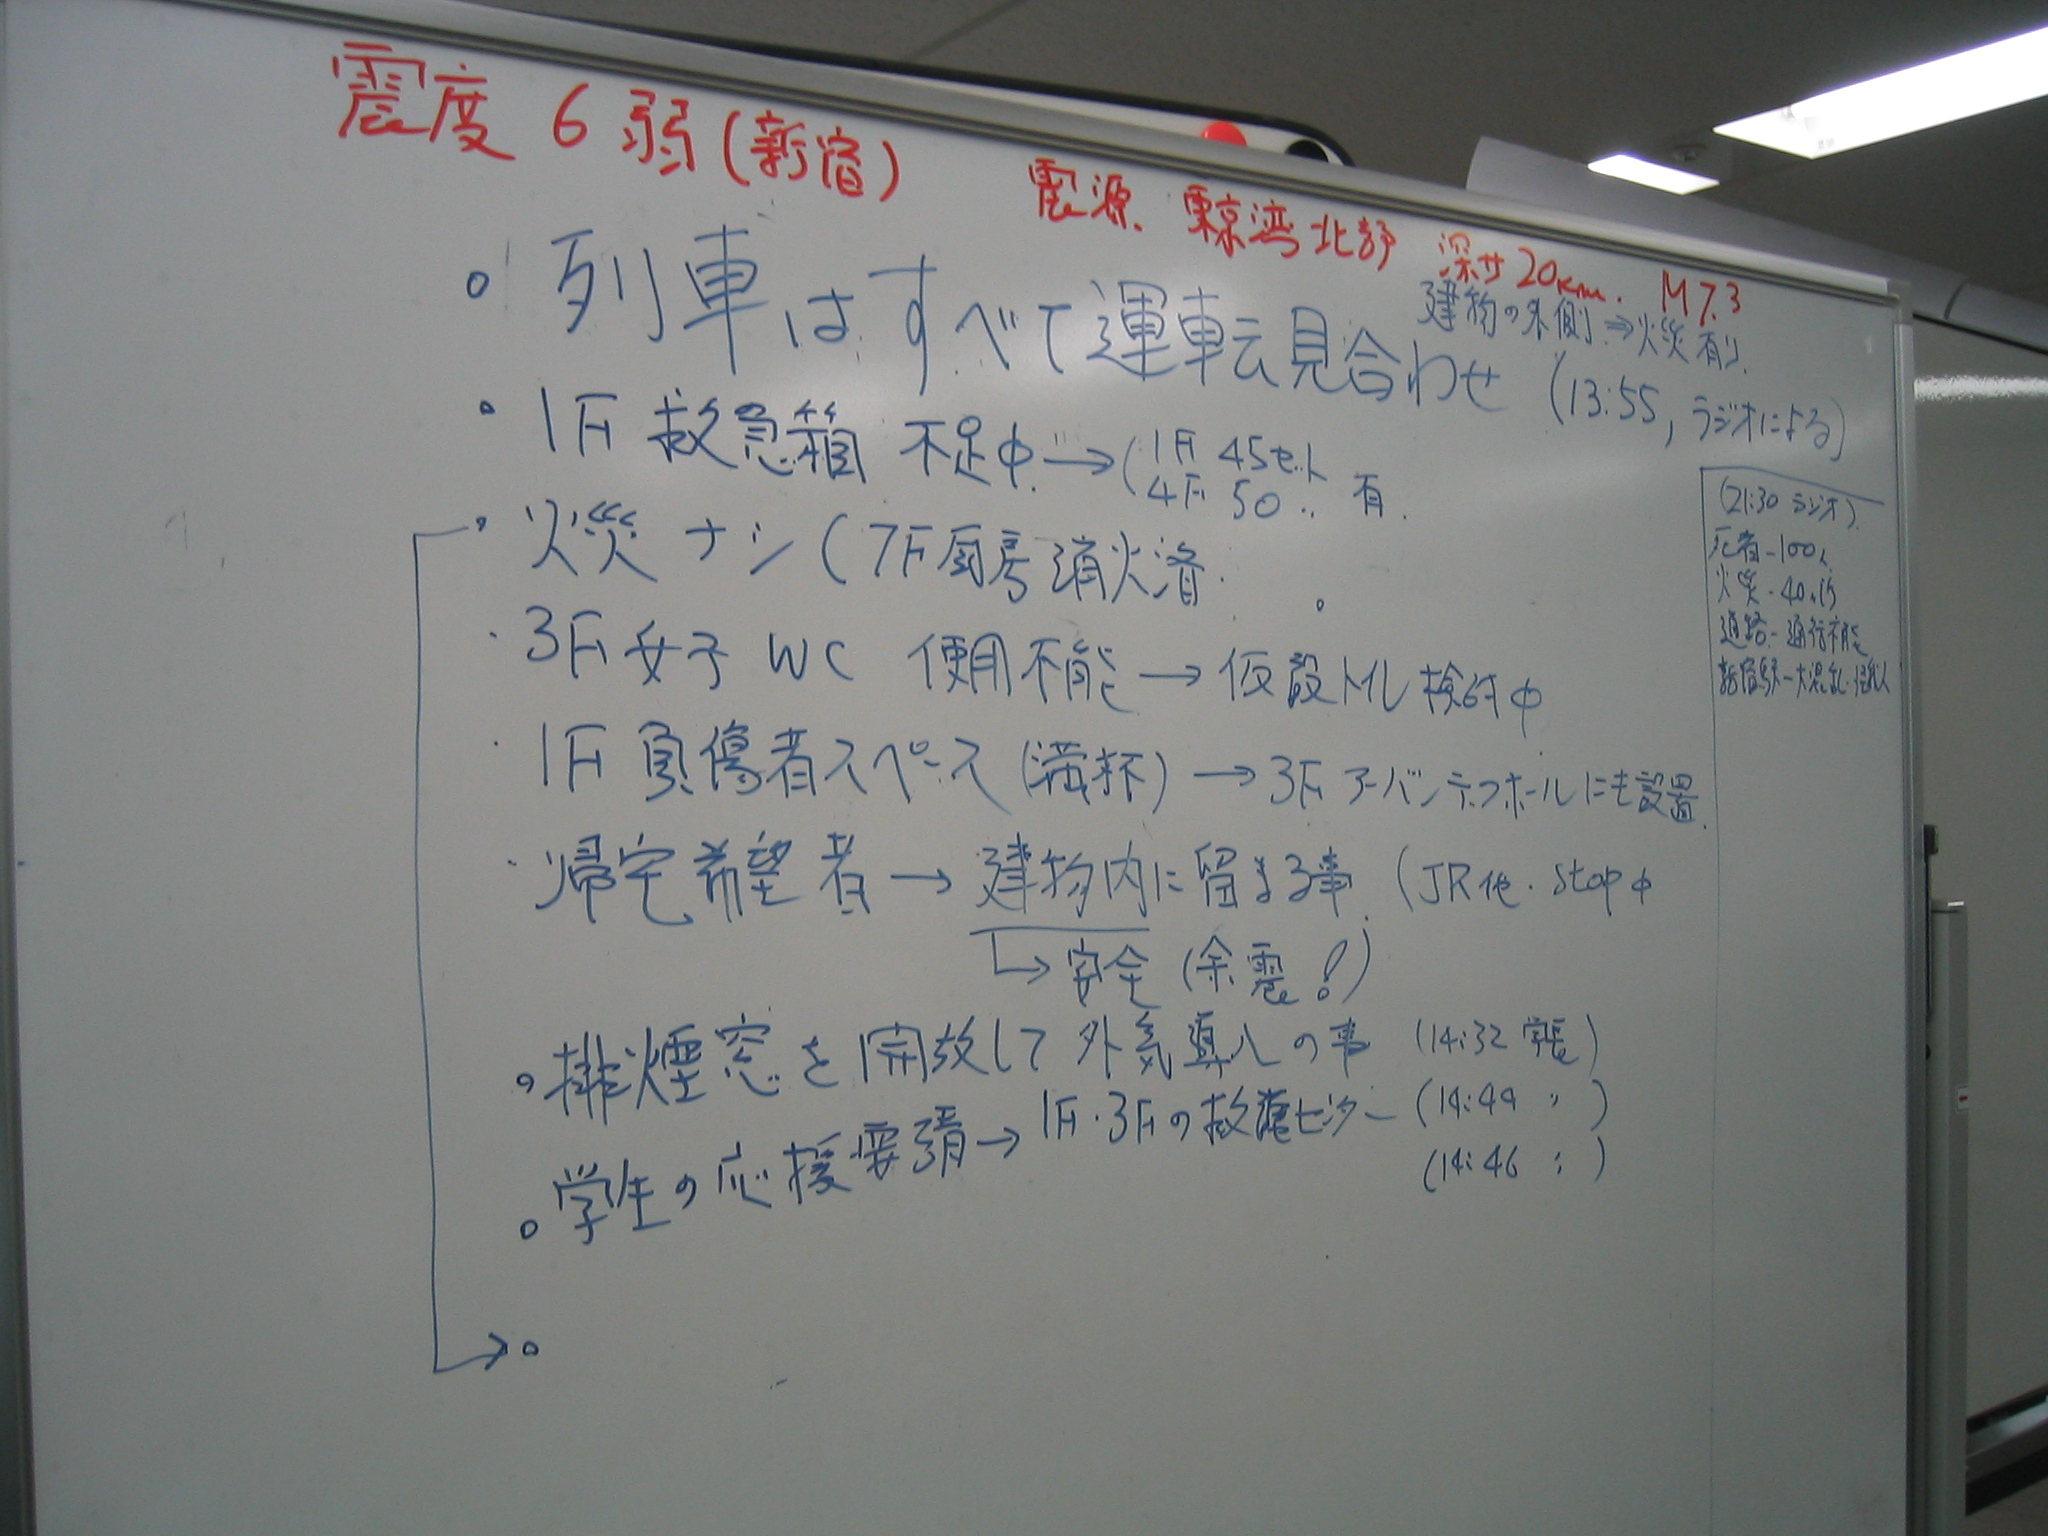 震度 6弱 (新宿)
震源. 東京湾北部 深サ20km. M7.3
建物の外側 ⇒ 火災有り.
。列車はすべて運転見合わせ (13:55, ラジオによる)
・1F 救急箱 不足中 → (1F 45セット
4F 50 〃 有.
・火災 ナシ (7F厨房消火済.
・3F女子 WC 使用不能 → 仮設トイレ検討中
・1F 負傷者スペース (満杯) → 3F アーバンテックホールにも設置.
・帰宅希望者 → 建物内に留まる事. (JR他. stop中
→ 安全 (余震!)
。排煙窓を開放して外気導入の事 (14:32
。学生の応援要請 → 1F・3Fの救護センター (14:44 〃)
(14:46 〃)
。
(21:30 ラジオ).
死者-100人
火災-40ヶ所
道路-通行不能
新宿駅-大混乱・怪我人